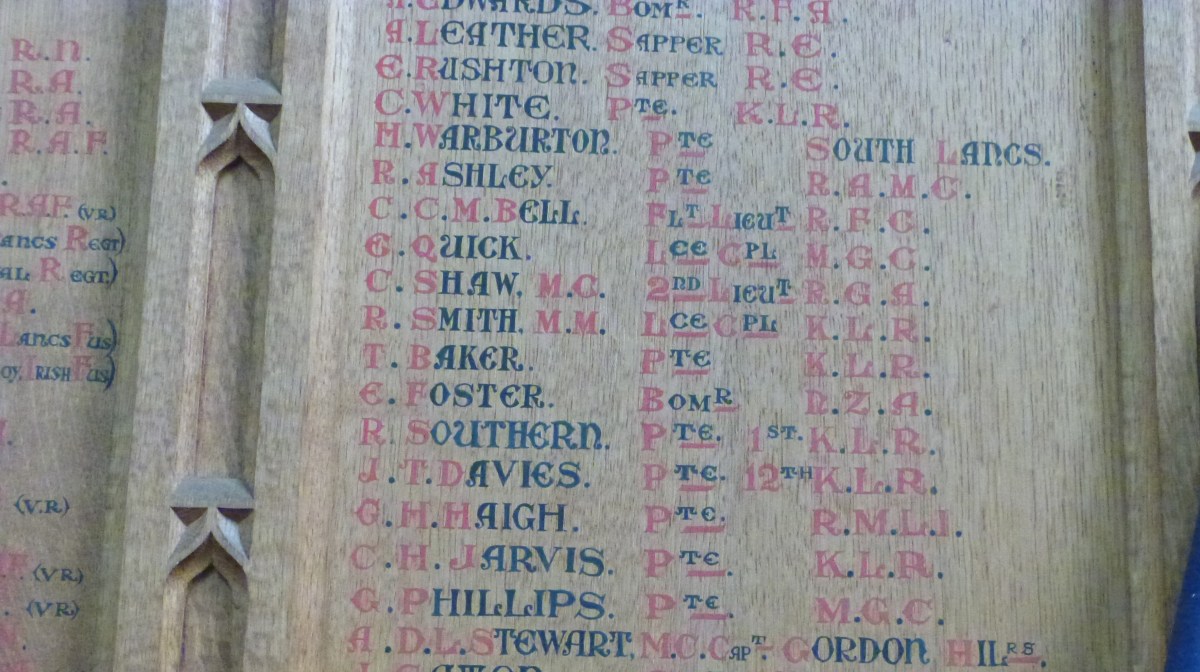 R.N.
R.A.
R.A.
R.A.F.
R.A.F. (V.R)
ANCS REGT)
AL REGT.)
A.
LANCS FUS)
OY. IRISH FUS)
(V.R)
(V.R)
(V.R)
EDWARDS. BOMR. R.F.A.
A. LEATHER. SAPPER R.E.
E. RUSHTON. SAPPER R.E.
C. WHITE. PTE. K.L.R.
H. WARBURTON. PTE SOUTH LANCS.
R. ASHLEY. PTE R.A.M.C.
C. C. M. BELL. FLT LIEUT R.F.C.
E. QUICK. LCE CPL M.G.C.
C. SHAW, M.C. 2ND LIEUT R.G.A.
R. SMITH, M.M. LCE CPL K.L.R.
T. BAKER. PTE K.L.R.
E. FOSTER. BOMR N.Z.A.
R. SOUTHERN. PTE. 1ST. K.L.R.
J. T. DAVIES. PTE. 12TH K.L.R.
G. H. HAIGH. PTE. R.M.L.I.
C. H. JARVIS. PTE. K.L.R.
G. PHILLIPS. PTE. M.G.C.
A. D. L. STEWART, M.C. CAPT. GORDON HILRS.